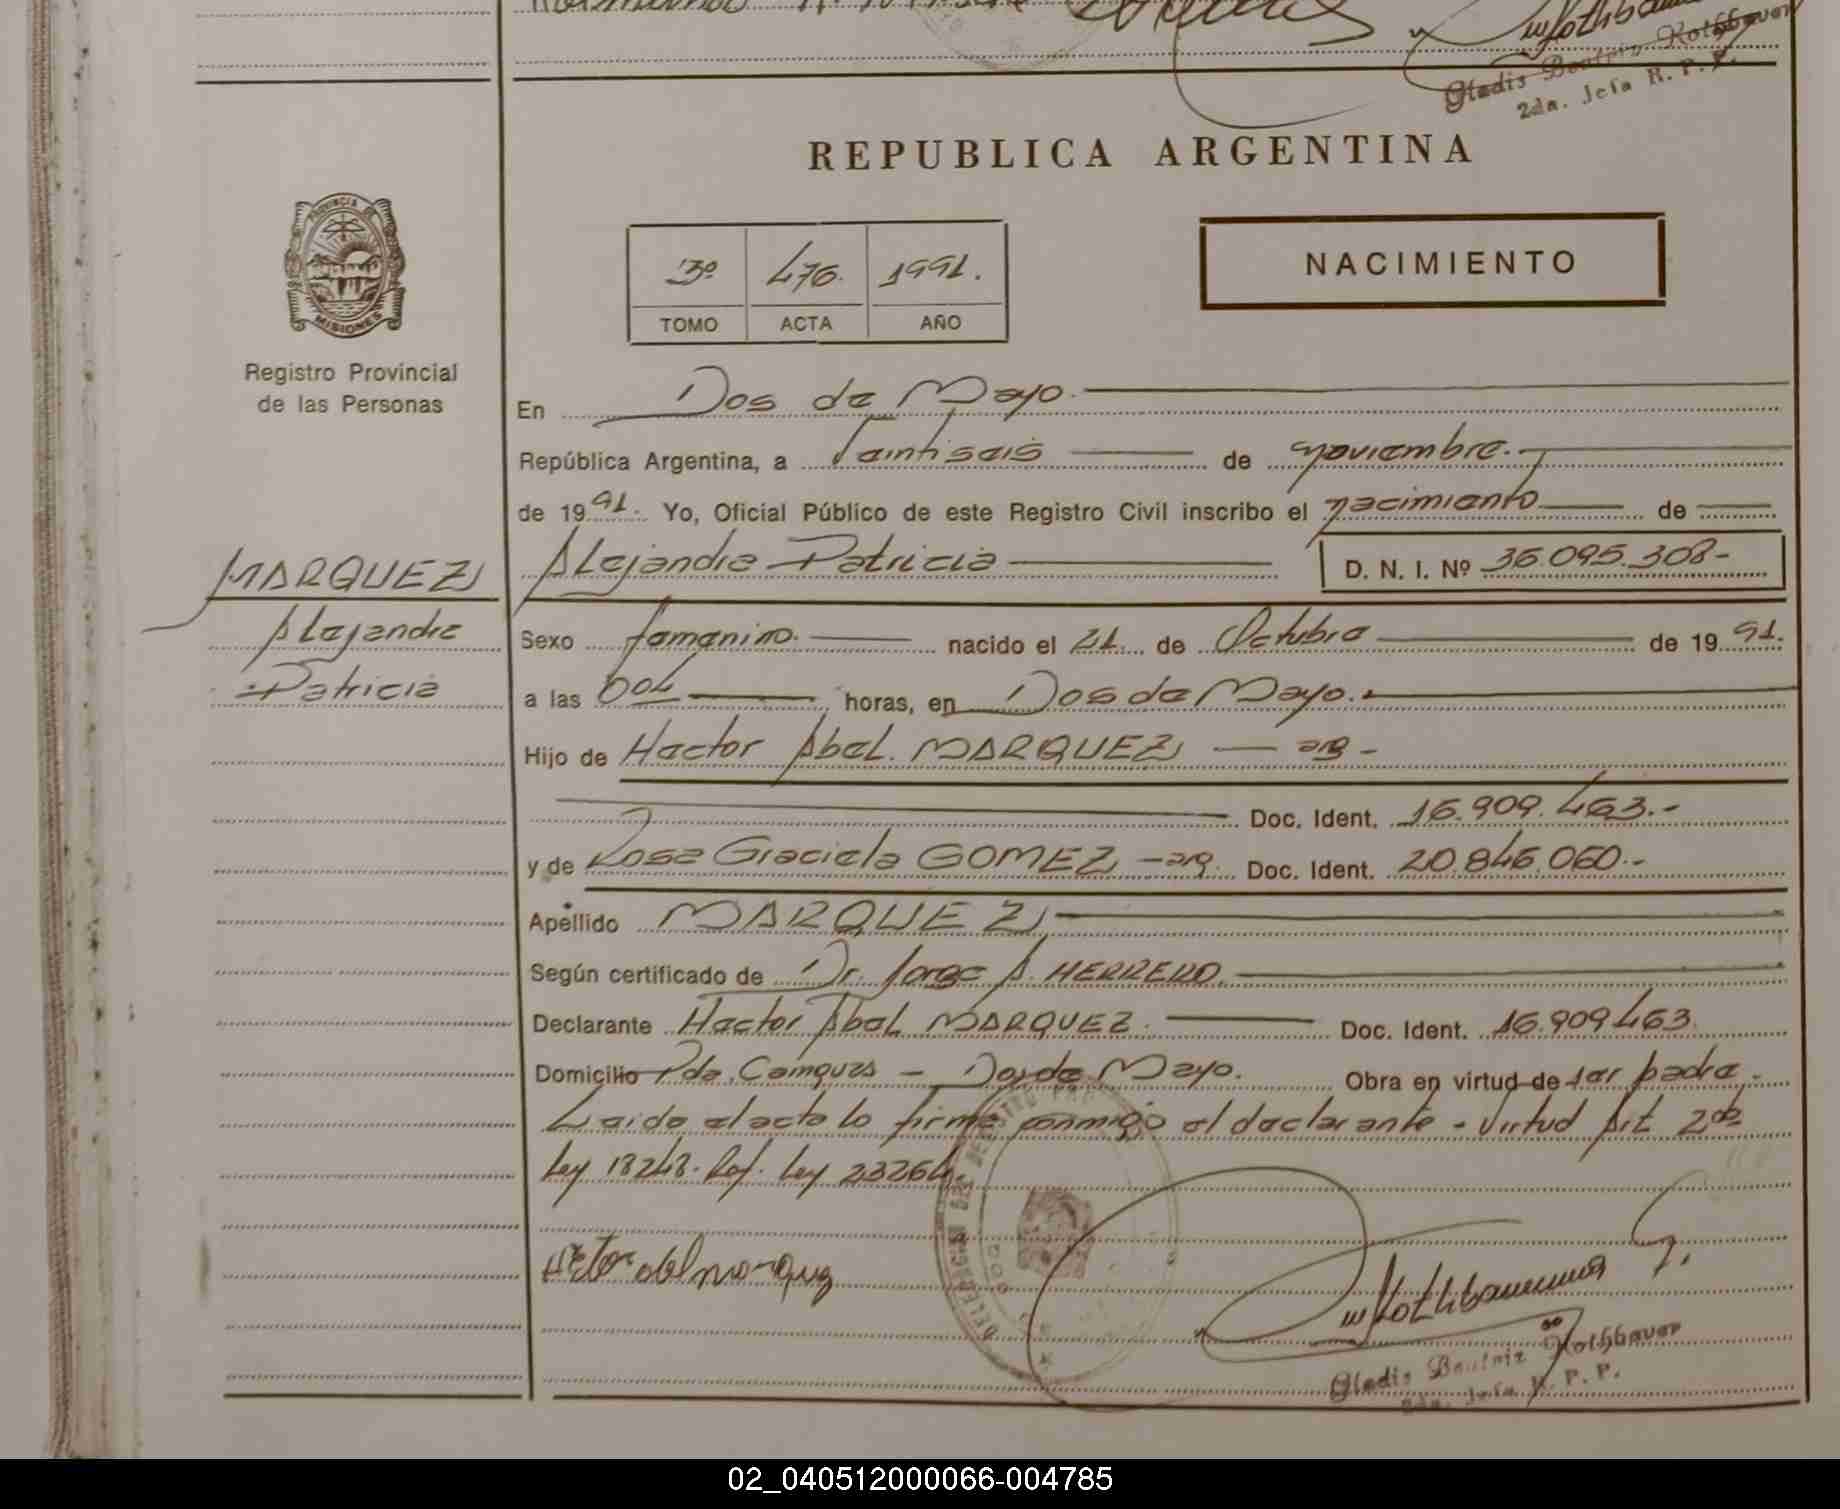 Gladis Beatriz Rothbauer
2da. Jefa R. P. P.
REPUBLICA ARGENTINA
PROVINCIA DE
MISIONES
3º 476. 1991.
TOMO ACTA AÑO
NACIMIENTO
Registro Provincial
de las Personas
En Dos de Mayo.
República Argentina, a Veintiseis de noviembre.
de 1991. Yo, Oficial Público de este Registro Civil inscribo el nacimiento de
MARQUEZ
Alejandra
Patricia
Alejandra Patricia D. N. I. Nº 36.095.308-
Sexo femenino. nacido el 21. de Octubre de 1991.
a las 004 horas, en Dos de Mayo.
Hijo de Hector Abel. MARQUEZ arg-
Doc. Ident. 16.909.463.-
y de Rosa Graciela GOMEZ -arg. Doc. Ident. 20.846.060.-
Apellido MARQUEZ
Según certificado de Dr. Jorge A. HERRERO.
Declarante Hector Abel MARQUEZ. Doc. Ident. 16.909463.
Domicilio Pda. Cainguas - Dos de Mayo. Obra en virtud de ser padre.
Leido el acta lo firma conmigo el declarante - Virtud Art 2do
Ley 18248. Ref. Ley 23264.
Gladis Beatriz Rothbauer
2da. Jefa R. P. P.
02_040512000066-004785